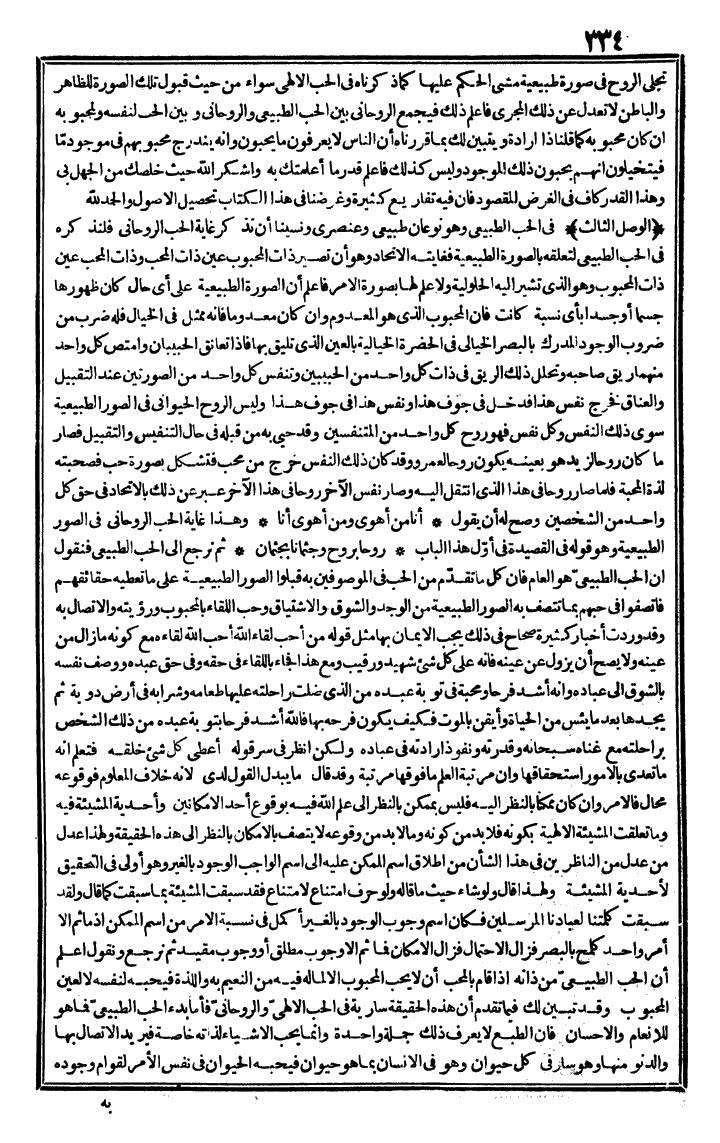 ٣٣٤
تجلى الروح فى صورة طبيعية مشى الحكم عليها كماذكرناه فى الحب الالهى سواء من حيث قبول تلك الصورة للظاهر
والباطن لا تعدل عن ذلك المجرى فاعلم ذلك فيجمع الروحانى بين الحب الطبيعى والروحانى وبين الحب لنفسه ولمحبوبه
ان كان محبوبه كماقلنا ذا ارادة ويتبين لك بماقررناه أن الناس لا يعرفون ما يحبون وانه يندرج محبوبهم فى موجود مّا
فيتخيلون انهم يحبون ذلك الموجود وليس كذلك فاعلم قدر ما أعلمتك به واشكر الله حيث خلصك من الجهل بى
وهذا القدر كاف فى الغرض المقصود فان فيه تفاريع كثيرة وغرضنا فى هذا الكتاب تحصيل الاصول والحمد لله
﴿الوصل الثالث﴾ فى الحب الطبيعى وهو نوعان طبيعى وعنصرى ونسينا أن نذكر غاية الحب الروحانى فلنذكره
فى الحب الطبيعى لتعلقه بالصورة الطبيعية فغايته الاتحاد وهو أن تصير ذات المحبوب عين ذات المحب وذات المحب عين
ذات المحبوب وهو الذى تشير اليه الحلولية ولا علم لها بصورة الامر فاعلم أن الصورة الطبيعية على أى حال كان ظهورها
جسما أو جسدا بأى نسبة كانت فان المحبوب الذى هو المعدوم وان كان معدوما فانه ممثل فى الخيال فله ضرب من
ضروب الوجود المدرك بالبصر الخيالى فى الحضرة الخيالية بالعين الذى تليق بها فاذا تعانق الحبيبان وامتص كل واحد
منهما ريق صاحبه وتحلل ذلك الريق فى ذات كل واحد من الحبيبين وتنفس كل واحد من الصورتين عند التقبيل
والعناق فخرج نفس هذا فدخل فى جوف هذا ونفس هذا فى جوف هذا وليس الروح الحيوانى فى الصور الطبيعية
سوى ذلك النفس وكل نفس فهو روح كل واحد من المتنفسين وقد حيى به من قبله فى حال التنفس والتقبيل فصار
ما كان روحا لزيد هو بعينه يكون روحا لعمرو وقد كان ذلك النفس خرج من محب فتشكل بصورة حب فصحبته
لذة المحبة فلما صار روحا فى هذا الذى انتقل اليه وصار نفس الآخر روحا فى هذا الآخر عبر عن ذلك بالاتحاد فى حق كل
واحد من الشخصين وصح له أن يقول * أنا من أهوى ومن أهوى أنا * وهذا غاية الحب الروحانى فى الصور
الطبيعية وهو قوله فى القصيدة فى أوّل هذا الباب * روحا بروح وجثمانا بجثمان * ثم نرجع الى الحب الطبيعى فنقول
ان الحب الطبيعىّ هو العام فان كل ما تقدّم من الحب فى الموصوفين به قبلوا الصور الطبيعية على ما تعطيه حقائقهم
فاتصفوا فى حبهم بما تتصف به الصور الطبيعية من الوجد والشوق والاشتياق وحب اللقاء بالمحبوب ورؤيته والاتصال به
وقد وردت أخبار كثيرة صحاح فى ذلك يجب الايمان بها مثل قوله من أحب لقاء الله أحب الله لقاءه مع كونه ما زال من
عينه ولا يصح أن يزول عن عينه فانه على كل شئ شهيد ورقيب ومع هذا فجاء باللقاء فى حقه وفى حق عبده ووصف نفسه
بالشوق الى عباده وانه أشد فرحا ومحبة فى توبة عبده من الذى ضلت راحلته عليها طعامه وشرابه فى أرض دوية ثم
يجدها بعد ما يئس من الحياة وأيقن بالموت فكيف يكون فرحه بها فالله أشد فرحا بتوبة عبده من ذلك الشخص
براحلته مع غناه سبحانه وقدرته ونفوذ ارادته فى عباده ولكن انظر فى سر قوله أعطى كل شئ خلقه فتعلم انه
ما تعدى بالامور استحقاقها وان مرتبة العلم ما فوقها مرتبة وقد قال ما يبدل القول لدى لانه خلاف المعلوم فوقوعه
محال فالامر وان كان ممكنا بالنظر اليه فليس بممكن بالنظر الى علم الله فيه بوقوع أحد الامكانين وأحدية المشيئة فيه
وما تعلقت المشيئة الالهية بكونه فلا بد من كونه وما لا بد من وقوعه لا يتصف بالامكان بالنظر الى هذه الحقيقة ولهذا عدل
من عدل من الناظرين فى هذا الشأن من اطلاق اسم الممكن عليه الى اسم الواجب الوجود بالغير وهو أولى فى التحقيق
لأحدية المشيئة ولهذا قال ولو شاء حيث ما قاله ولو حرف امتناع لامتناع فقد سبقت المشيئة بما سبقت كما قال ولقد
سبقت كلمتنا لعبادنا المرسلين فكان اسم وجوب الوجود بالغير أكمل فى نسبة الامر من اسم الممكن اذ ما ثم الا
أمر واحد كلمح بالبصر فزال الاحتمال فزال الامكان فما ثم الا وجوب مطلق أو وجوب مقيد ثم نرجع ونقول اعلم
أن الحب الطبيعىّ من ذاته اذا قام بالمحب أن لا يحب المحبوب الا لما له فيه من النعيم به واللذة فيحبه لنفسه لا لعين
المحبوب وقد تبين لك فيما تقدم أن هذه الحقيقة سارية فى الحب الالهىّ والروحانىّ فأما بدء الحب الطبيعىّ فما هو
للانعام والاحسان فان الطبع لا يعرف ذلك جملة واحدة وانما يحب الاشياء لذاته خاصة فيريد الاتصال بها
والدنو منها وهو سار فى كل حيوان وهو فى الانسان بما هو حيوان فيحبه الحيوان فى نفس الأمر لقوام وجوده
به